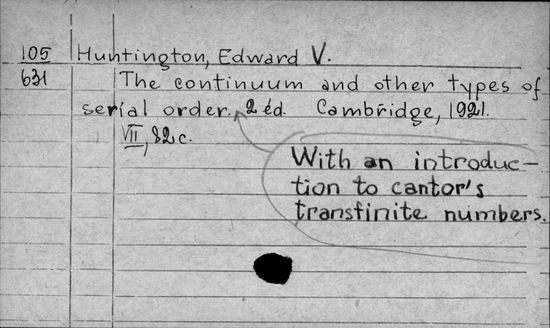 105 Huntington, Edward V.
631 The continuum and other types of
serial order. 2 éd. Cambridge, 1921.
VII, 82c.
With an introduc-
tion to cantor's
transfinite numbers.